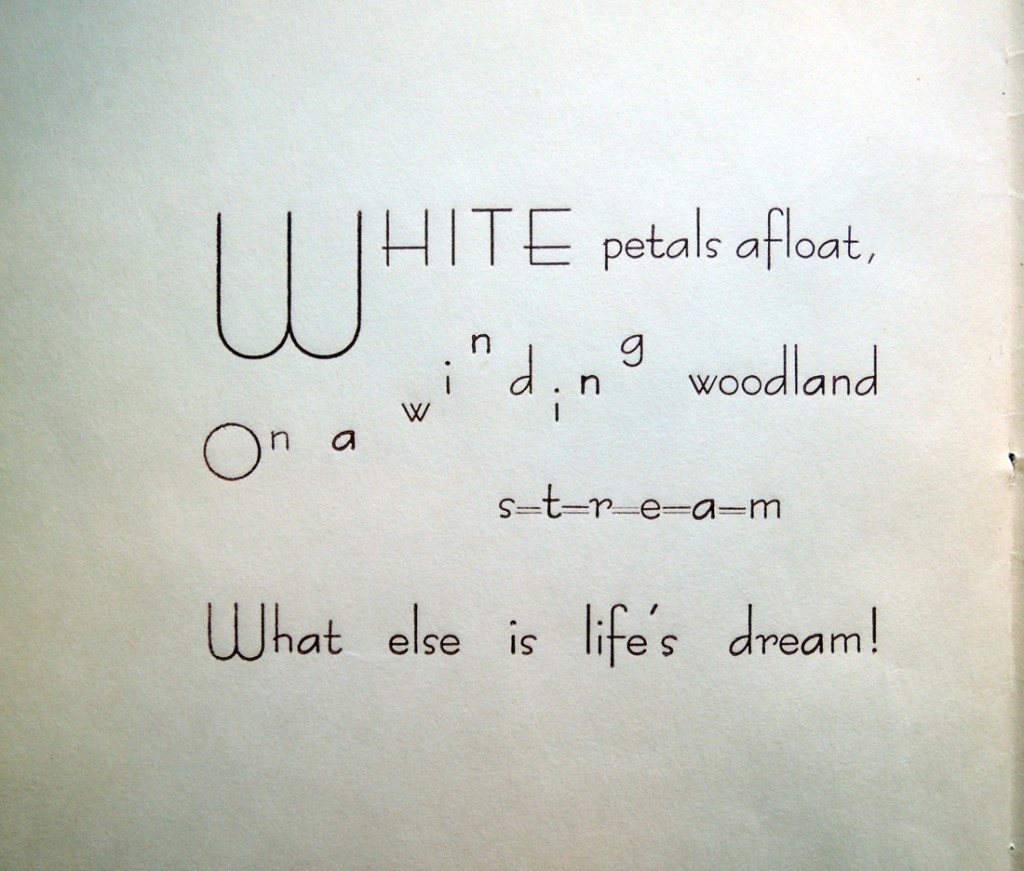 WHITE petals afloat,
On a winding woodland
s=t=r=e=a=m
What else is life's dream!